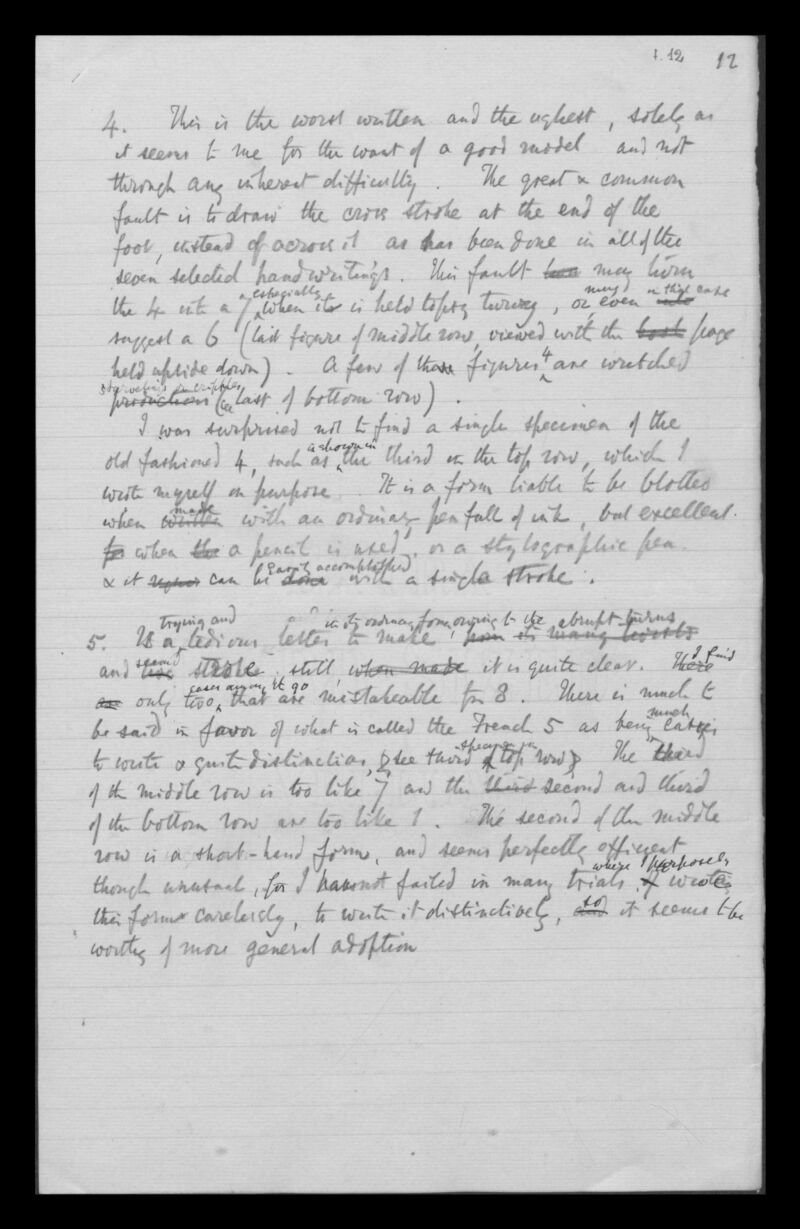 f. 12 12
4. This is the worst written and the ugliest, solely as
it seems to me for the want of a good model and not
through any inherent difficulty. The great & common
fault is to draw the cross stroke at the end of the
foot, instead of across it as has been done in all of the
seven selected handwritings. This fault may turn
especially may in this case
the 4 into a 7 when it is held topsy turvey, or even
suggest a 6 (last figure of middle row, viewed with the book page
held upside down). A few of these figures 4 are wretched
productions (see last of bottom row).
I was surprised not to find a single specimen of the
is shown in
old fashioned 4, such as the third in the top row, which I
wrote myself on purpose. It is a form liable to be blotted
made
when written with an ordinary pen full of ink, but excellent
for when the a pencil is used, or a stylographic pen
easily accomplished
& it can be done with a single stroke.
trying and in its ordinary form, owing to the abrupt turns
5. Is a tedious letter to make, from its many twists
second
and stroke, still, when made it is quite clear. There I find
cases among 
as only two that are mistakeable for 8. There is much to
much
be said in favor of what is called the French 5 as being easier
specimen in
to write & quite distinctive, (see third top row) The third
of the middle row is too like 7 and the third second and third
of the bottom row are too like 1. The second of the middle
row is a short-hand form, and seems perfectly efficient
where I purposely
though unusual, for I have not failed in many trials I wrote
this form carelessly, to write it distinctively, so it seems to be
worthy of more general adoption